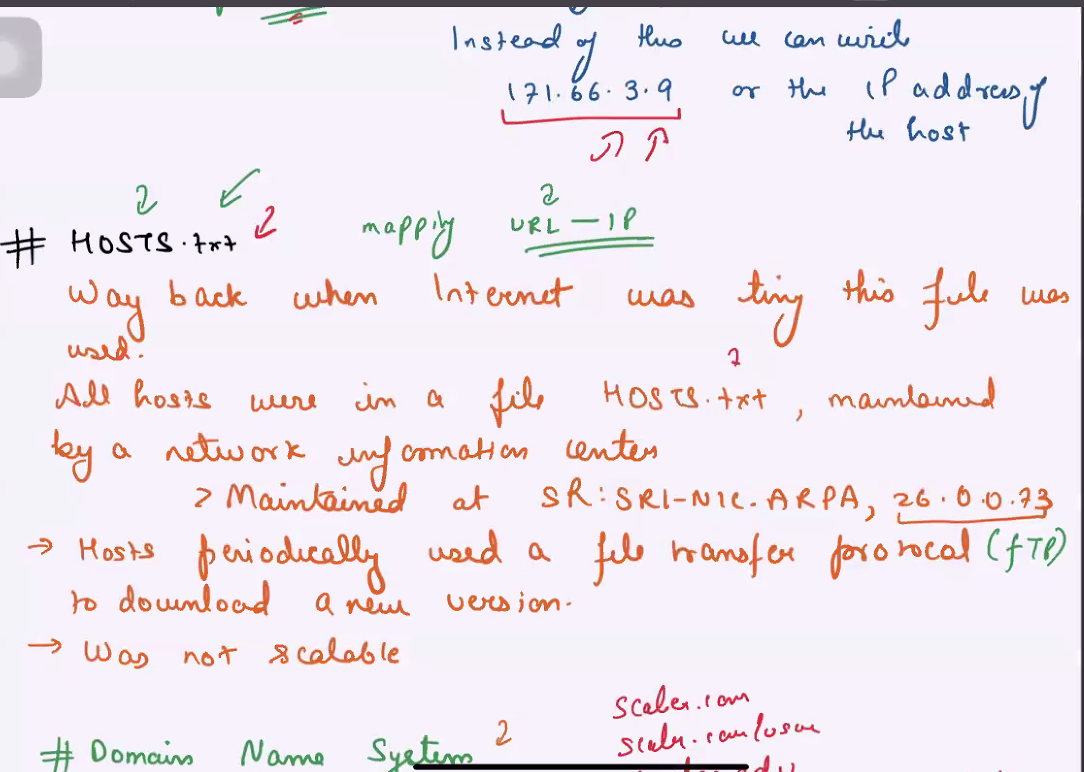 Instead of this we can write
171.66.3.9 or the IP address of
the host
# HOSTS.txt mapping URL - IP
Way back when Internet was tiny this file was
used.
All hosts were in a file HOSTS.txt, maintained
by a network information center
> Maintained at SR:SRI-NIC.ARPA, 26.0.0.73
→ Hosts periodically used a file transfer protocal (FTP)
to download a new version.
→ Was not scalable
scaler.com
# Domain Name System